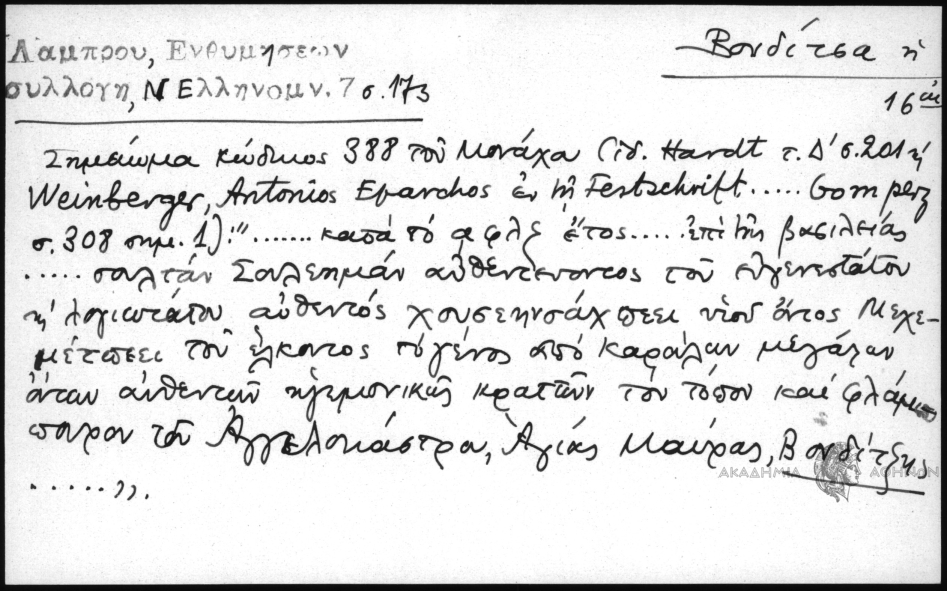 Λαμπρου, Ενθυμησεων
συλλογη, Ν Ελληνομν. 7 σ. 173
Βονδίτσα ἡ
16 αἰ
Σημείωμα κώδικος 388 τοῦ Μονάχου (ἰδ. Hardt τ. Δ' σ. 201 κἑ
Weinberger, Antonios Eparchos ἐν τῇ Festschrift ..... Gomperz
σ. 308 σημ. 1): "....... κατὰ τὸ αφλξ ἔτος ..... ἐπὶ τῆς βασιλείας
..... σουλτάν Σουλεημάν αὐθεντεύοντος τοῦ εὐγενεστάτου
κἡ λογιωτάτου αὐθεντός χουσεηνσάχπεει υἱοῦ ὄντος Μεχε-
μέτπεει τοῦ ἕλκοντος τὸ γένος ἀπὸ καράλων μεγάλων
ὄντων αὐθεντῶν ἡγεμονικῶς κρατῶν τὸν τόπον καὶ φλάμπ
πουρον τοῦ Ἀγγελοκάστρου, Ἁγίας Μαύρας, Βονδίτζης
......".
ΑΚΑΔΗΜΙΑ ΑΘΗΝΩΝ